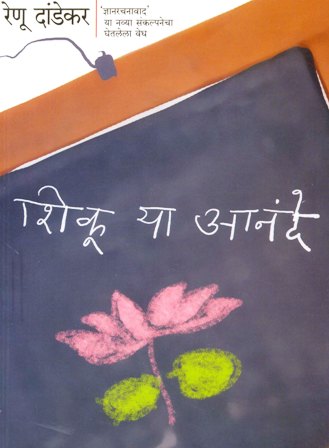 रेणू दांडेकर
'ज्ञानरचनावाद'
या नव्या संकल्पनेचा
घेतलेला वेध
शिकू या आनंदे